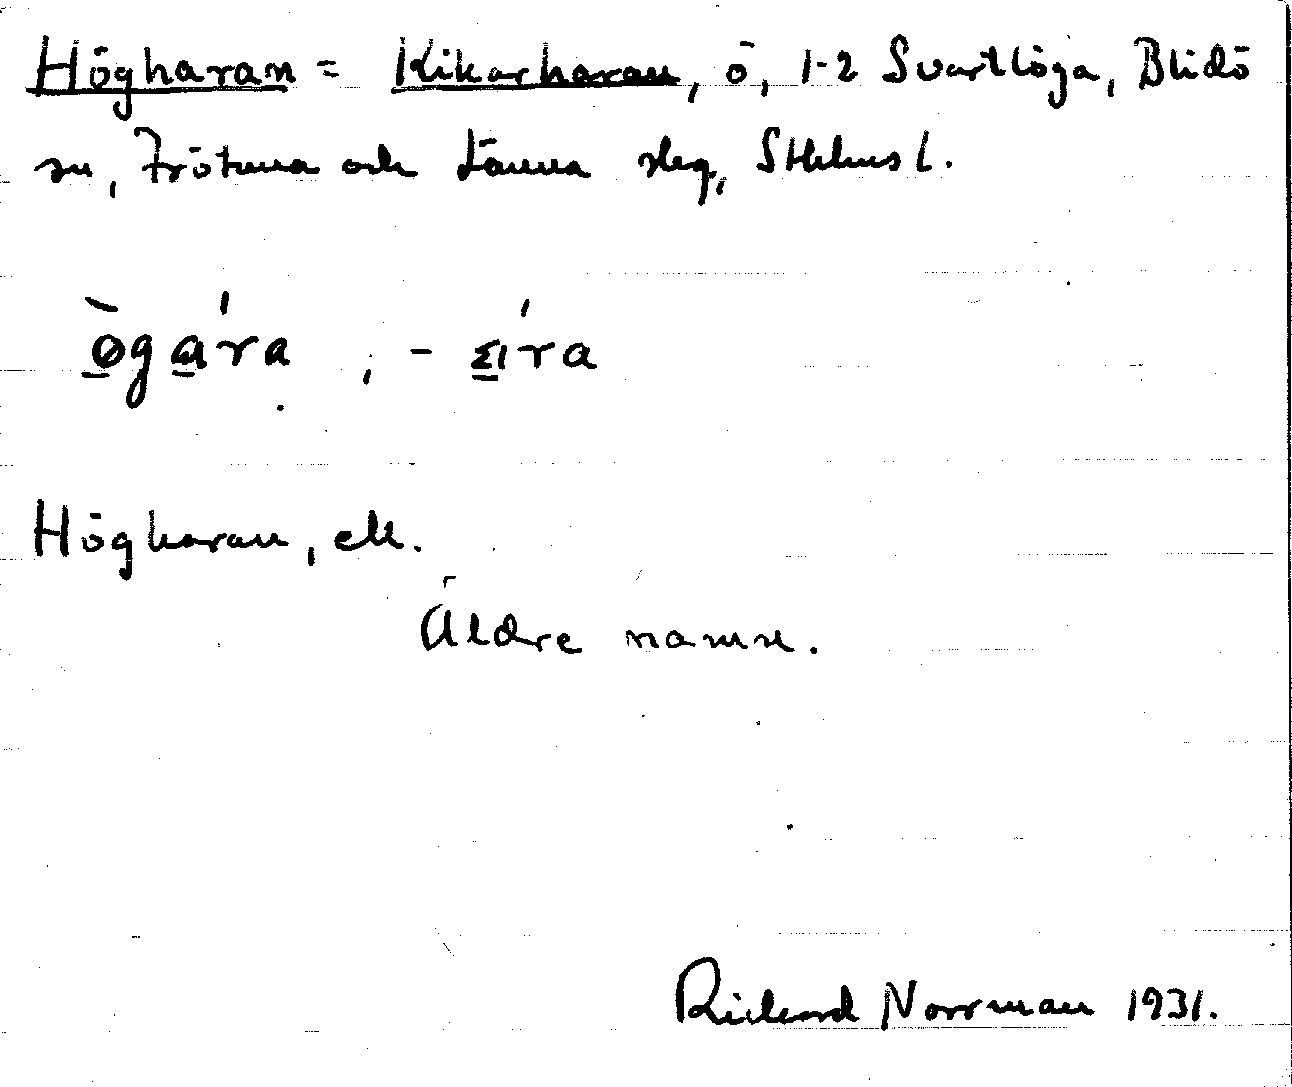 Högharan = Kikarharan, ö, 1-2 Svartlöga, Blidö
sn, Frötuna och Länna slg, Sthlms l.
ògára , - ɛíra
Högharan, ek.
Äldre namn.
Rickard Norrman 1931.